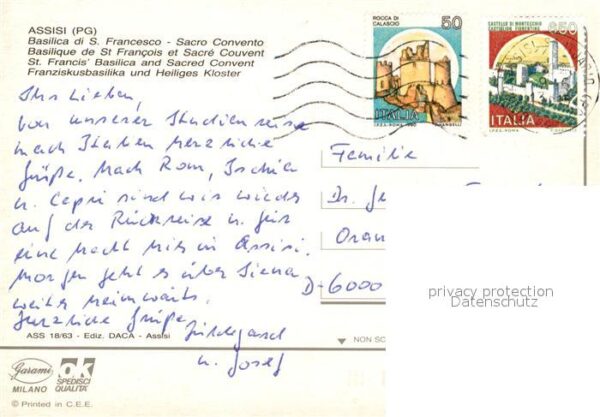 ASSISI (PG)
Basilica di S. Francesco - Sacro Convento
Basilique de St François et Sacré Couvent
St. Francis' Basilica and Sacred Convent
Franziskusbasilika und Heiliges Kloster
ROCCA DI CALASCIO
50
ITALIA
CASTELLO DI MONTECCHIO
CASTIGLION FIORENTINO
850
ITALIA
Ihr Lieben,
von unserer Studienreise
nach Italien herzliche
Grüße. Nach Rom, Ischia
u. Capri sind wir wieder
auf der Rückreise u. für
eine Nacht hier in Assisi.
Morgen geht es über Siena
weiter heimwärts.
Herzliche Grüße
Hildegard
u. Josef
Familie
Dr. Je
Oran
D-6000
privacy protection
Datenschutz
ASS 18/63 - Ediz. DACA - Assisi
NON SC
Garami
MILANO
OK
SPEDISCI
QUALITÀ
© Printed in C.E.E.